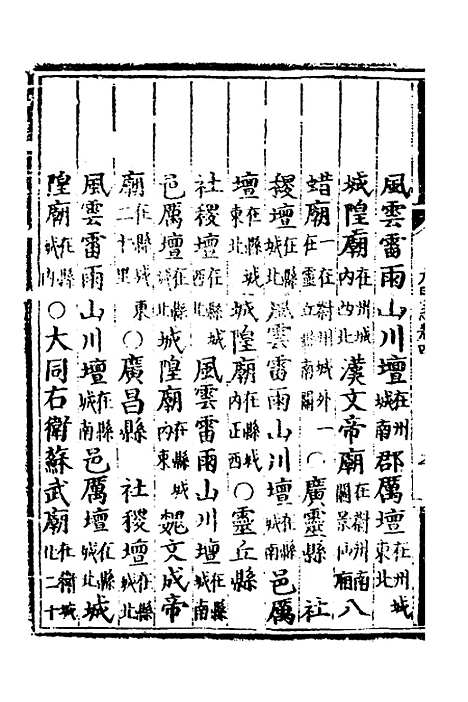 風雲雷雨山川壇在州城南郡厲壇在州城東北
城隍廟在州城内西北漢文帝廟在蔚州南關景山廟八
蜡廟一在蔚州城外一在靈丘縣南關〇廣靈縣社
稷壇在縣城北風雲雷雨山川壇在縣城南邑厲
壇在縣城東北城隍廟在縣城内正西〇靈丘縣
社稷壇在縣城西北風雲雷雨山川壇在縣城南
邑厲壇在縣城北城隍廟在縣城内東魏文成帝
廟在縣城東二十里〇廣昌縣社稷壇在縣城北
風雲雷雨山川壇在縣城南邑厲壇在縣城北城
隍廟在縣城内〇大同右衛蘇武廟在衛城北二十